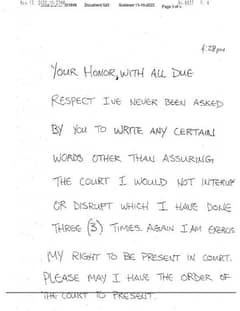 Document 520
Page 3 of 4
4:28pm
YOUR HONOR, WITH ALL DUE
RESPECT I'VE NEVER BEEN ASKED
BY YOU TO WRITE ANY CERTAIN
WORDS OTHER THAN ASSURING
THE COURT I WOULD NOT INTERUP
OR DISRUPT WHICH I HAVE DONE
THREE (3) TIMES. AGAIN I AM
MY RIGHT TO BE PRESENT IN COURT.
PLEASE MAY I HAVE THE ORDER OF
THE COURT TO PRESENT.